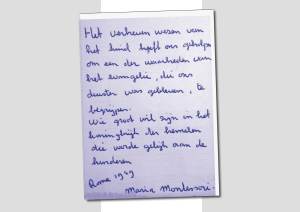 Het vertrouwen wezen van
het kind heeft ons geholpen
om een der waarheden van
het evangelie, die ons
duister was gebleven, te
begrijpen.
Wie groot wil zijn in het
koninkrijk der hemelen
die worde gelijk aan de
kinderen
Rome 1949
Maria Montessori.